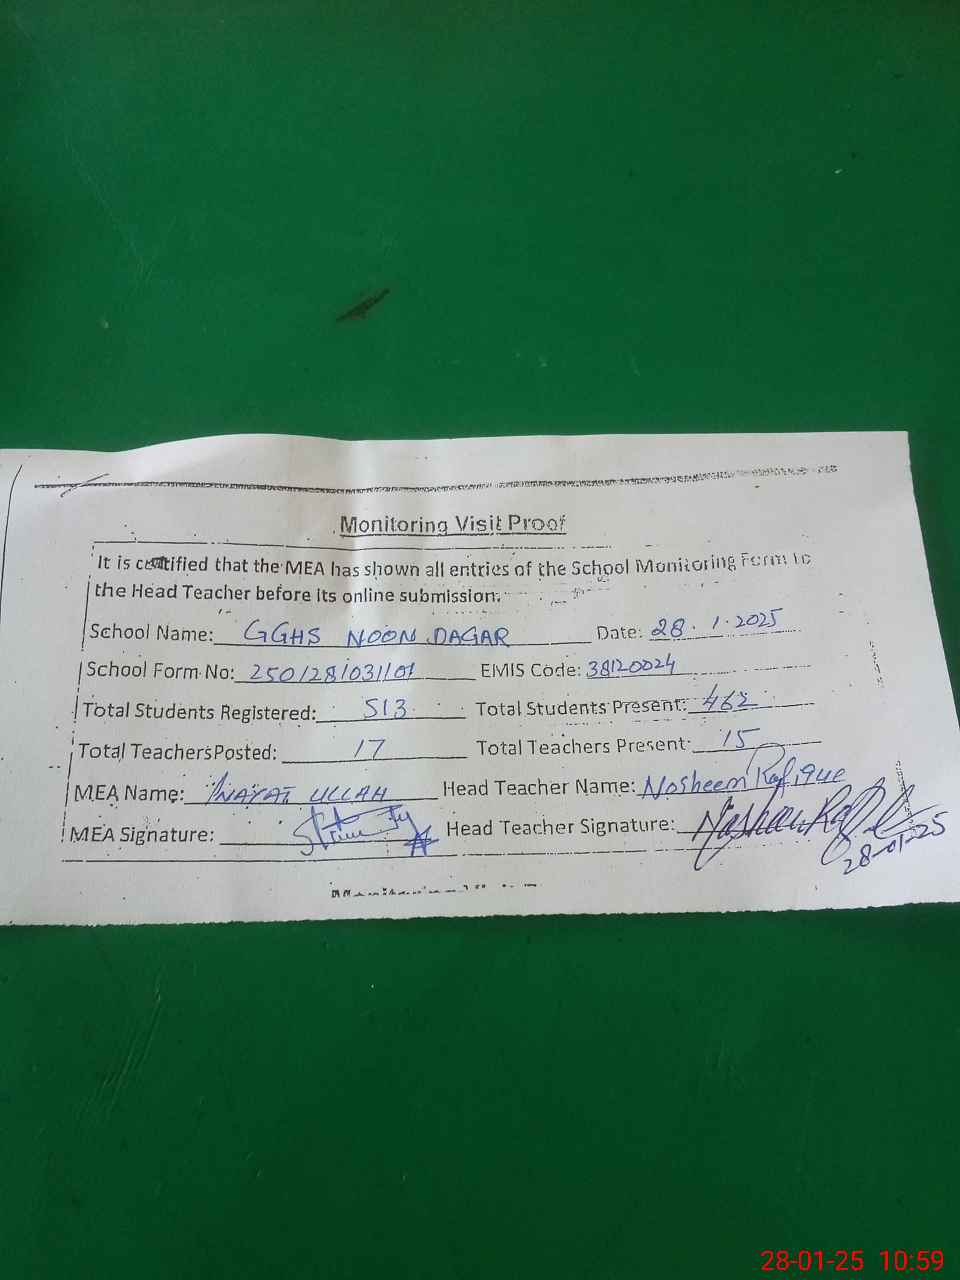 Monitoring Visit Proof
It is certified that the MEA has shown all entries of the School Monitoring Form to
the Head Teacher before its online submission.
School Name: GGHS NOON DAGAR Date: 28.1.2025
School Form No: 2501281031101 EMIS Code: 38120024
Total Students Registered: 513 Total Students Present: 462
Total Teachers Posted: 17 Total Teachers Present: 15
MEA Name: INAYAT ULLAH Head Teacher Name: Nosheem Rafique
MEA Signature: Head Teacher Signature:
28-01-25
28-01-25 10:59